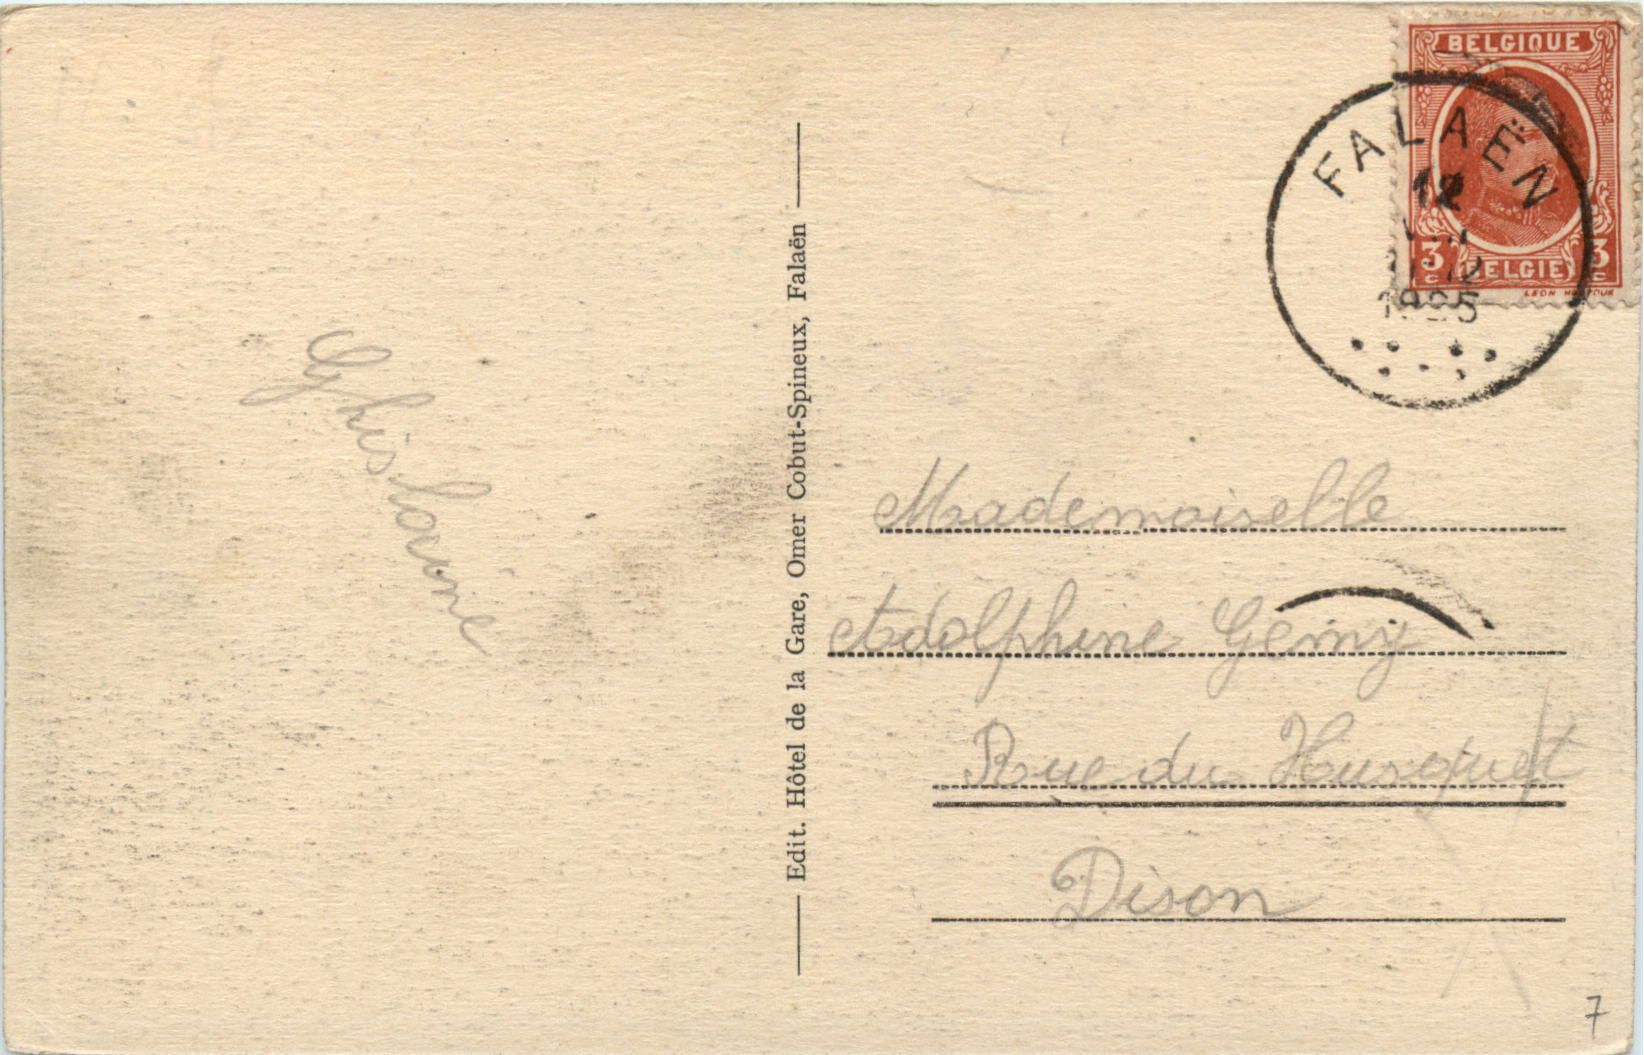 BELGIQUE
3 c BELGIE 3 c
FALAËN
12
1925
Ghislaine
Edit. Hôtel de la Gare, Omer Cobut-Spineux, Falaën
Mademoiselle
Adolphine Gemy
Rue du Husquet
Dison
7